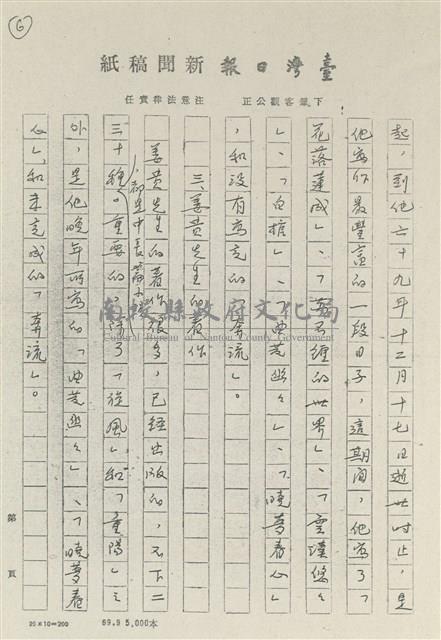 6
臺灣日報新聞稿紙
下筆客觀公正　注意法律責任
起，到他六十九年十二月十七日逝世時止，是
他寫作最豐富的一段日子，這期間，他寫了「
花落蓮成」、「萬古纏的世界」、「雲漢悠々
」、「白棺」、「曲荒幽々」、「曉夢春心」
，和沒有寫完的「奔流」。
三、姜貴先生的著作
姜貴先生的著作很多，已經出版的，不下二
三十種，都是中長篇小說。重要的，除了「旋風」和「重陽」之
外，是他晚年所寫的「曲荒幽々」、「曉夢春
心」和未完成的「奔流」。
第　頁
南投縣政府文化局
Cultural Bureau of Nantou County Government
20×10=200
69.9 5,000本